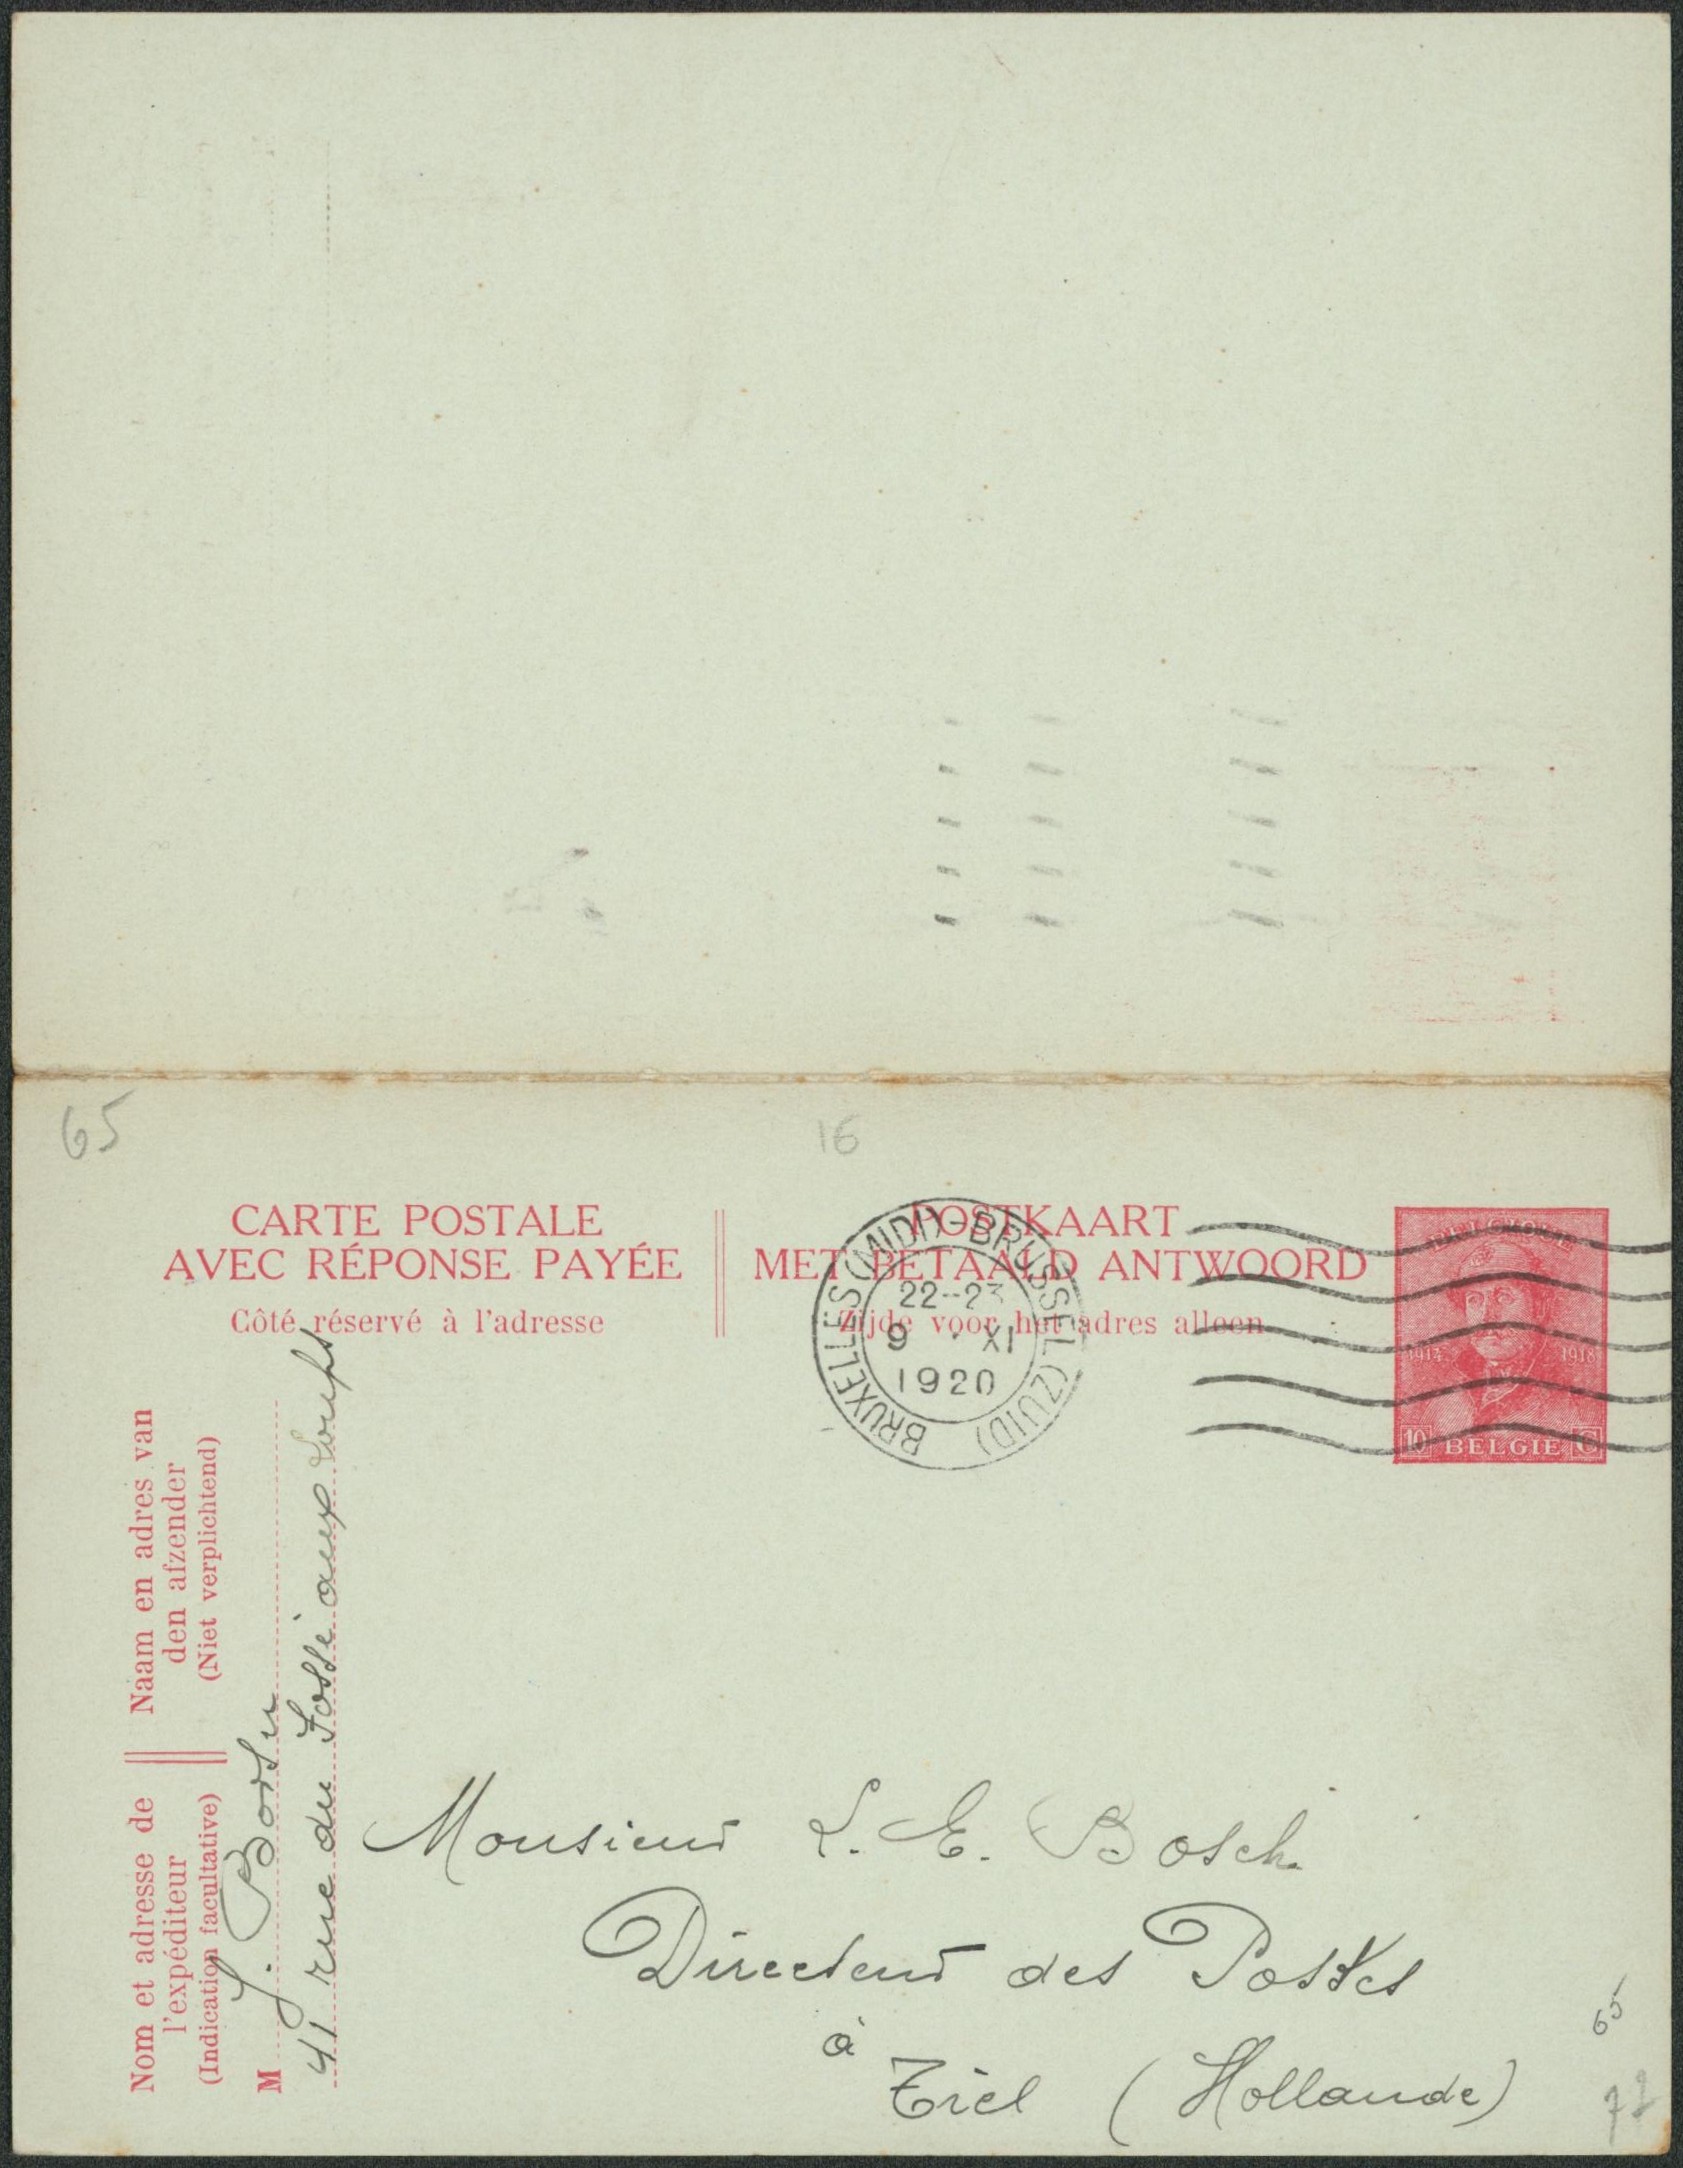 65
16
CARTE POSTALE
AVEC RÉPONSE PAYÉE
Côté réservé à l'adresse
POSTKAART
MET BETAALD ANTWOORD
Zijde voor het adres alleen
BRUXELLES (MIDI)-BRUSSEL (ZUID)
22-23
9 · XI
1920
1914 1918
10 BELGIË C
Naam en adres van
den afzender
(Niet verplichtend)
Nom et adresse de
l'expéditeur
(Indication facultative)
M J. Borsu
41 rue du Fossé aux Loups
Monsieur L. E. Bosch
Directeur des Postes
à
Tiel (Hollande)
65